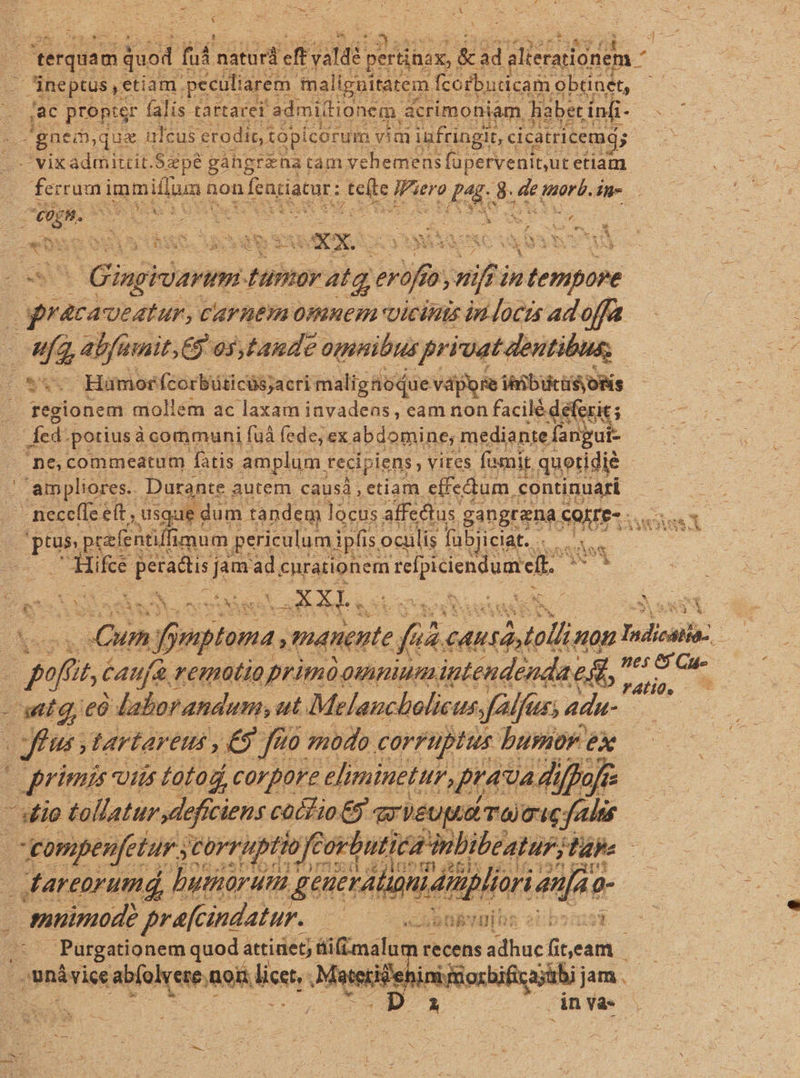 terquàm quod suâ naturâ est valdè pertinax, & ad alterationem
ineptus, etiam peculiarem malignitatem scorbuticam obtinet,
ac propter salis tartarei admistionem acrimoniam habet insi-
gnem, quæ ulcus erodit, topicorum vim infringit, cicatricemq;
vix admittit. Sæpè gangræna tam vehemens supervenit, ut etiam
ferrum immissum non sentiatur: teste Wiero pag. 8. de morb. in-
cogn.
XX.
Gingivarum tumor atq, erosio, nisi in tempore
præcaveatur, carnem omnem vicinis in locis ad ossa
usq, absumit, & os, tandè omnibus privat dentibus.
Humor scorbuticus, acri malignoque vapore imbutus, oris
regionem mollem ac laxam invadens, eam non facilè deserit;
sed potius à communi suâ sede, ex abdomine, mediante sangui-
ne, commeatum satis amplum recipiens, vires sumit quotidiè
ampliores. Durante autem causâ, etiam effectum continuari
necesse est, usque dum tandem locus affectus gangræna corre-
ptus, præsentissimum periculum ipsis oculis subjiciat.
Hisce peractis jam ad curationem respiciendum est.
XXI.
Cum symptoma, manente suâ causâ, tolli non
possit, causæ remotio primò omnium intendenda est,
Indicatio-
nes & Cu-
ratio.
atq, eò laborandum, ut Melancholicus, salsus, adu-
stus, tartareus, & suo modo corruptus humor ex
primis viis totoq, corpore eliminetur, prava disposi-
tio tollatur, deficiens coctio & πνευμάτωσις salis
compensetur, corruptio scorbutica inhibeatur, tar-
tareorumq, humorum generationi ampliori ansa o-
mnimodè præscindatur.
Purgationem quod attinet, nisi malum recens adhuc sit, eam
unâ vice absolvere non licet. Materia enim morbifica, ubi jam
D 2
in va-